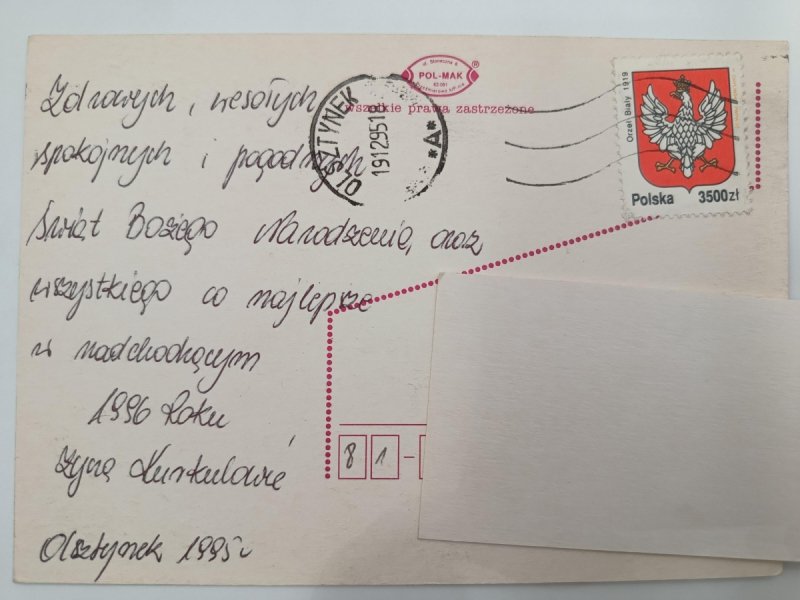 Zdrowych, wesołych
spokojnych i pogodnych
Świąt Bożego Narodzenia, oraz
wszystkiego co najlepsze
w nadchodzącym
1996 Roku
życzą
Olsztynek 1995r
POL-MAK
®
wszelkie prawa zastrzeżone
OLSZTYNEK
19129518
*A*
Orzeł Biały 1919
Polska 3500zł
81-